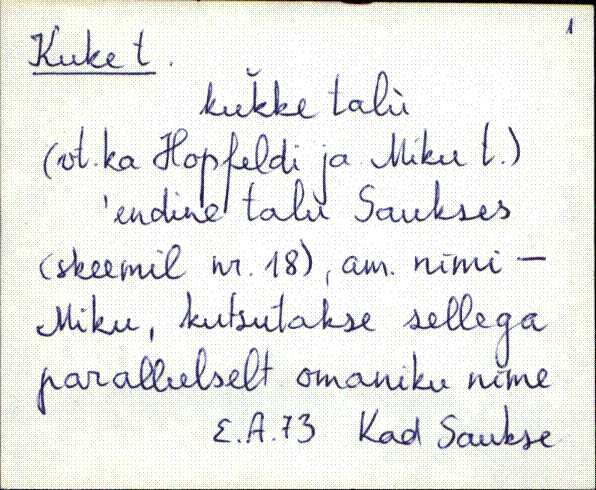 1
Kuke t.
kŭkke talù
(vt. ka Hopfeldi ja Miku t.)
'endine talù Saukses
(skeemil nr. 18), am. nimi –
Miku, kutsutakse sellega
paralleelselt omaniku nime
E.A.73 Kad Saukse